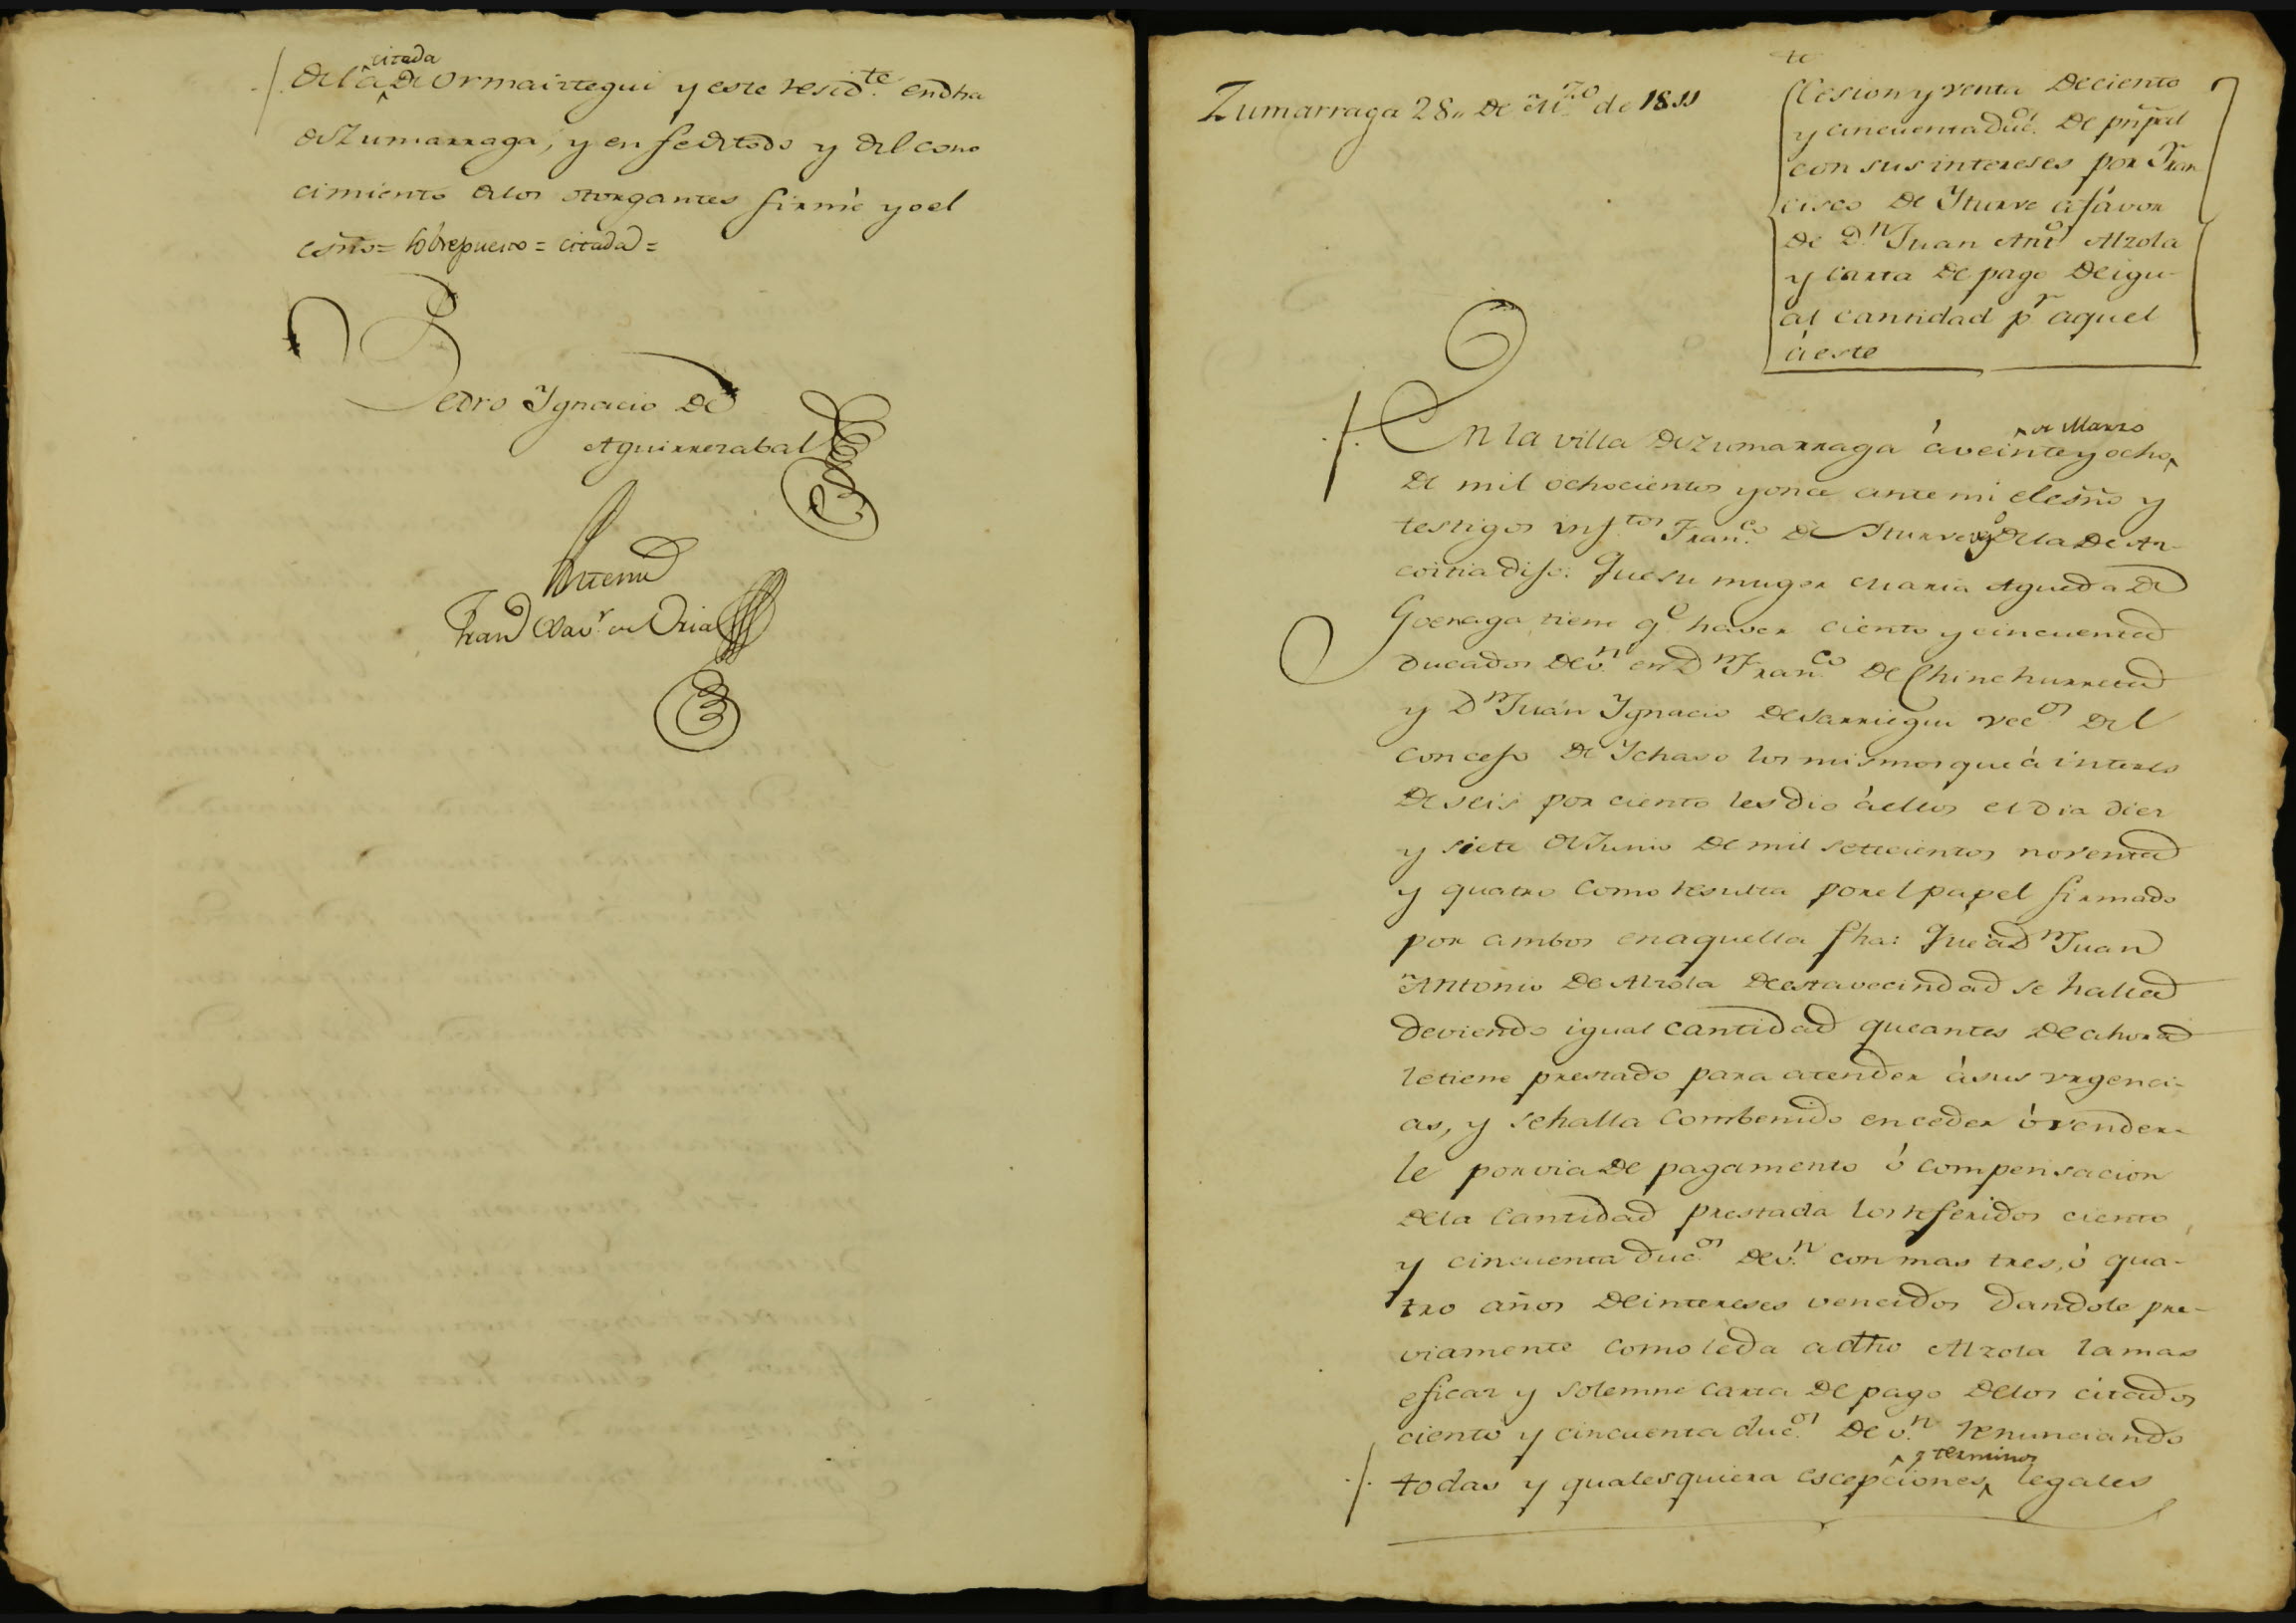 citada
de la de Ormaiztegui y este resid.te en dha
de Zumarraga, y en fe de todo y del cono
cimiento de los otorgantes firmé yo el
esño= sobrepuesto = citada =
Pedro Ygnacio de
Aguirrezabal
Antemi
Fran.co Xav.r de Oria
Zumarraga 28,, de M.zo de 1811
Cesion y venta de ciento
y cincuenta duc.s de prñpal
con sus intereses por Fran
cisco de Yturve á favor
de D.n Juan Ant.o Alzola
y carta de pago de igu-
al cantidad p.r aquel
á este
de Marzo
En la villa de Zumarraga á veinte y ocho
de mil ochocientos y once ante mi el esño y
testigos inf.tos Fran.co de Yturve v.o de la de Az-
coitia dijo: Que su muger Maria Agueda de
Goenaga tiene q.e haver ciento y cincuenta
ducados de v.n en D.n Fran.co de Chinchurreta
y D.n Juan Ygnacio de Sarriegui vec.os del
concejo de Ychaso los mismos que á interes
de seis por ciento les dio á ellos el dia diez
y siete de Junio de mil setecientos noventa
y quatro como resulta por el papel firmado
por ambos en aquella fha: Que á D.n Juan
Antonio de Alzola de esta vecindad se halla
deviendo igual cantidad que antes de ahora
le tiene prestado para atender á sus urgenci-
as, y se halla combenido en ceder ó vender-
le por via de pagamento ó compensacion
de la cantidad prestada los referidos ciento
y cincuenta duc.os de v.n con mas tres, ó qua-
tro años de intereses vencidos dandole pre-
viamente como le da a dho Alzola la mas
eficaz y solemne carta de pago de los citados
ciento y cincuenta duc.os de v.n renunciando
y terminos
todas y qualesquiera escepciones legales